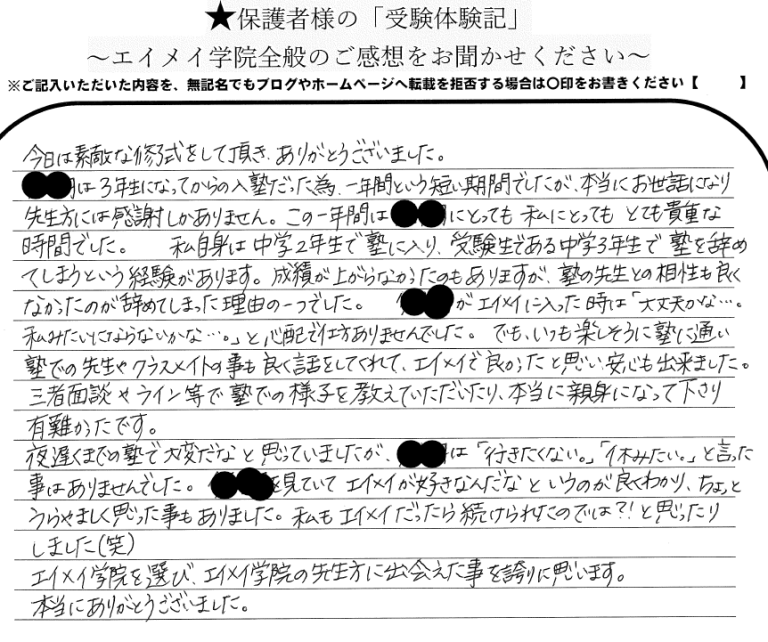 ★保護者様の「受験体験記」
～エイメイ学院全般のご感想をお聞かせください～
※ご記入いただいた内容を、無記名でもブログやホームページへ転載を拒否する場合は○印をお書きください【　　】
今日は素敵な修了式をして頂き、ありがとうございました。
は3年生になってからの入塾だった為、一年間という短い期間でしたが、本当にお世話になり
先生方には感謝しかありません。この一年間は にとっても私にとってもとても貴重な
時間でした。 私自身は中学2年生で塾に入り、受験生である中学3年生で塾を辞め
てしまうという経験があります。成績が上がらなかったのもありますが、塾の先生との相性も良く
なかったのが辞めてしまった理由の一つでした。 がエイメイに入った時は「大丈夫かな…。
私みたいにならないかな…。」と心配で仕方ありませんでした。でも、いつも楽しそうに塾に通い
塾での先生やクラスメイトの事も良く話をしてくれて、エイメイで良かったと思い安心も出来ました。
三者面談やライン等で塾での様子を教えていただいたり、本当に親身になって下さり
有難かったです。
夜遅くまでの塾で大変だなと思っていましたが、 は「行きたくない。」「休みたい。」と言った
事はありませんでした。 を見ていてエイメイが好きなんだなというのが良くわかり、ちょっと
うらやましく思った事もありました。私もエイメイだったら続けられたのでは?!と思ったり
しました(笑)
エイメイ学院を選び、エイメイ学院の先生方に出会えた事を誇りに思います。
本当にありがとうございました。